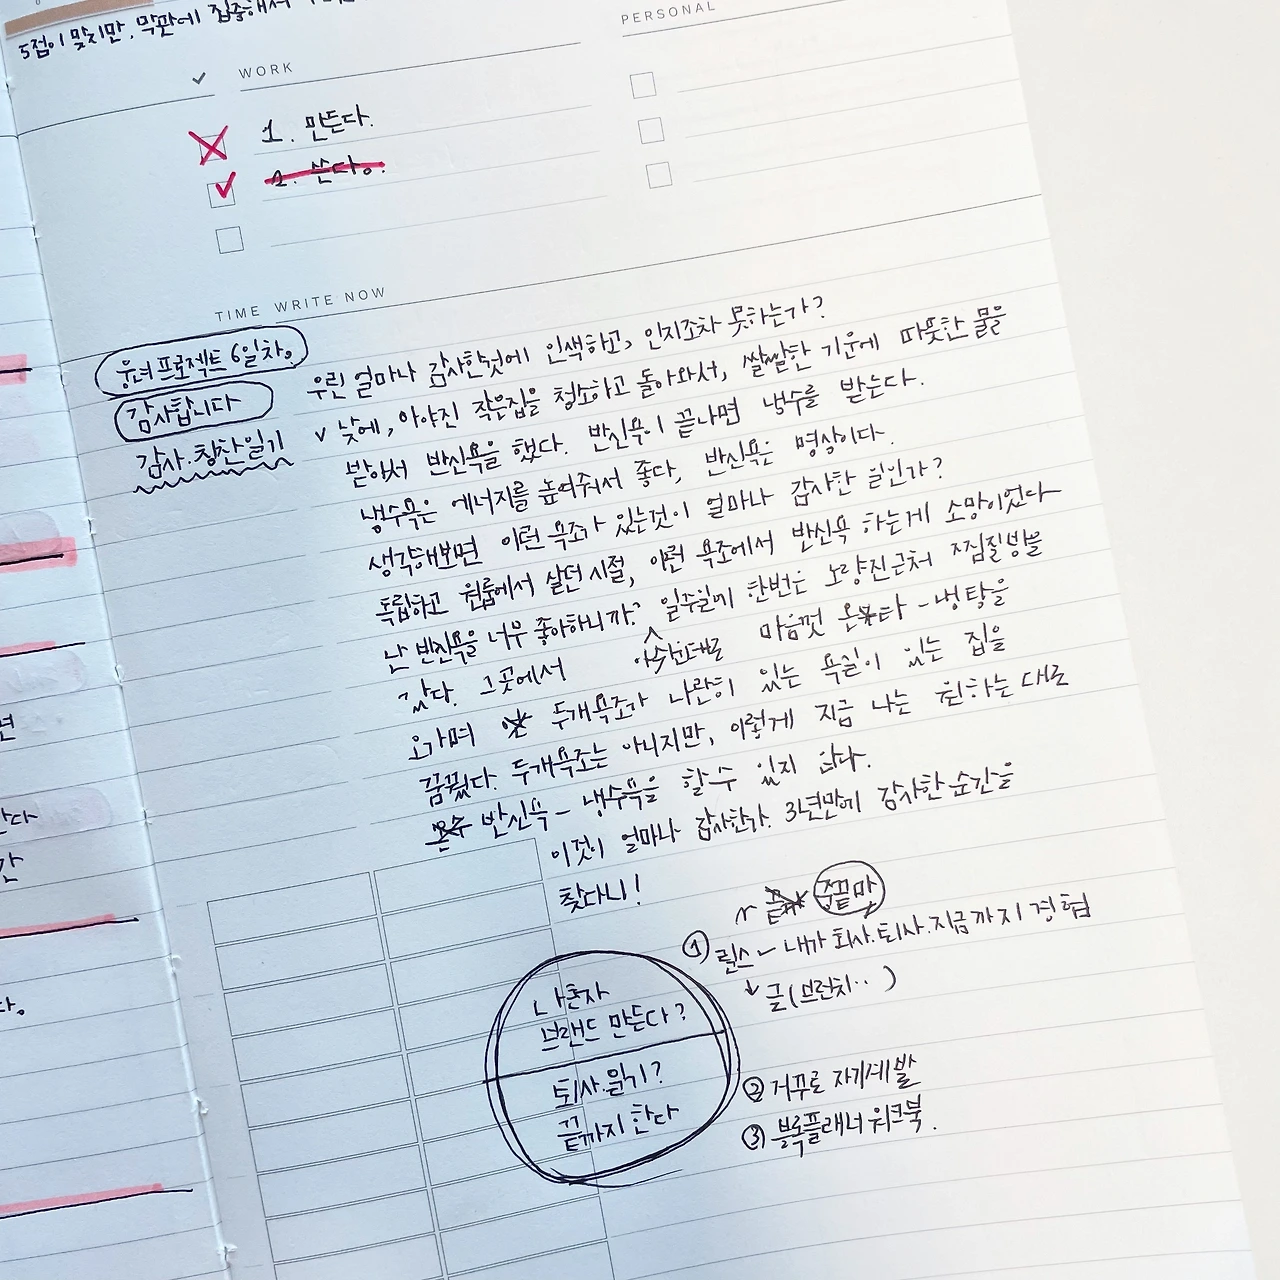 5점이 맞지만, 막판에 집중해서
WORK
PERSONAL
1. 만든다.
2. 쓴다.
TIME WRITE NOW
웅녀프로젝트 6일차.
감사합니다
감사.칭찬일기
우린 얼마나 감사한것에 인색하고, 인지조차 못하는가?
v 낮에, 아야진 작은집을 청소하고 돌아와서, 쌀쌀한 기운에 따뜻한 물을
받아서 반신욕을 했다. 반신욕이 끝나면 냉수를 받는다.
냉수욕은 에너지를 높여줘서 좋다, 반신욕은 명상이다.
생각해보면 이런 욕조가 있는것이 얼마나 감사한 일인가?
독립하고 원룸에서 살던 시절, 이런 욕조에서 반신욕 하는게 소망이었다
난 반신욕을 너무 좋아하니까? 일주일에 한번은 노량진근처 찜질방을
갔다. 그곳에서 아쉬운대로 마음껏 온탕-냉탕을
오가며 두개욕조가 나란히 있는 욕실이 있는 집을
꿈꿨다. 두개욕조는 아니지만, 이렇게 지금 나는 원하는 대로
반신욕-냉수욕을 할수 있지 않다.
이것이 얼마나 감사한가. 3년만에 감사한 순간을
찾다니!
①
내가 회사.퇴사.지금까지 경험
↓ 글(브런치..)
나혼자
브랜드 만든다?
퇴사.일기?
끝까지 한다
② 거꾸로 자기계발
③ 블록플래너 워크북.
년
다
간
다.